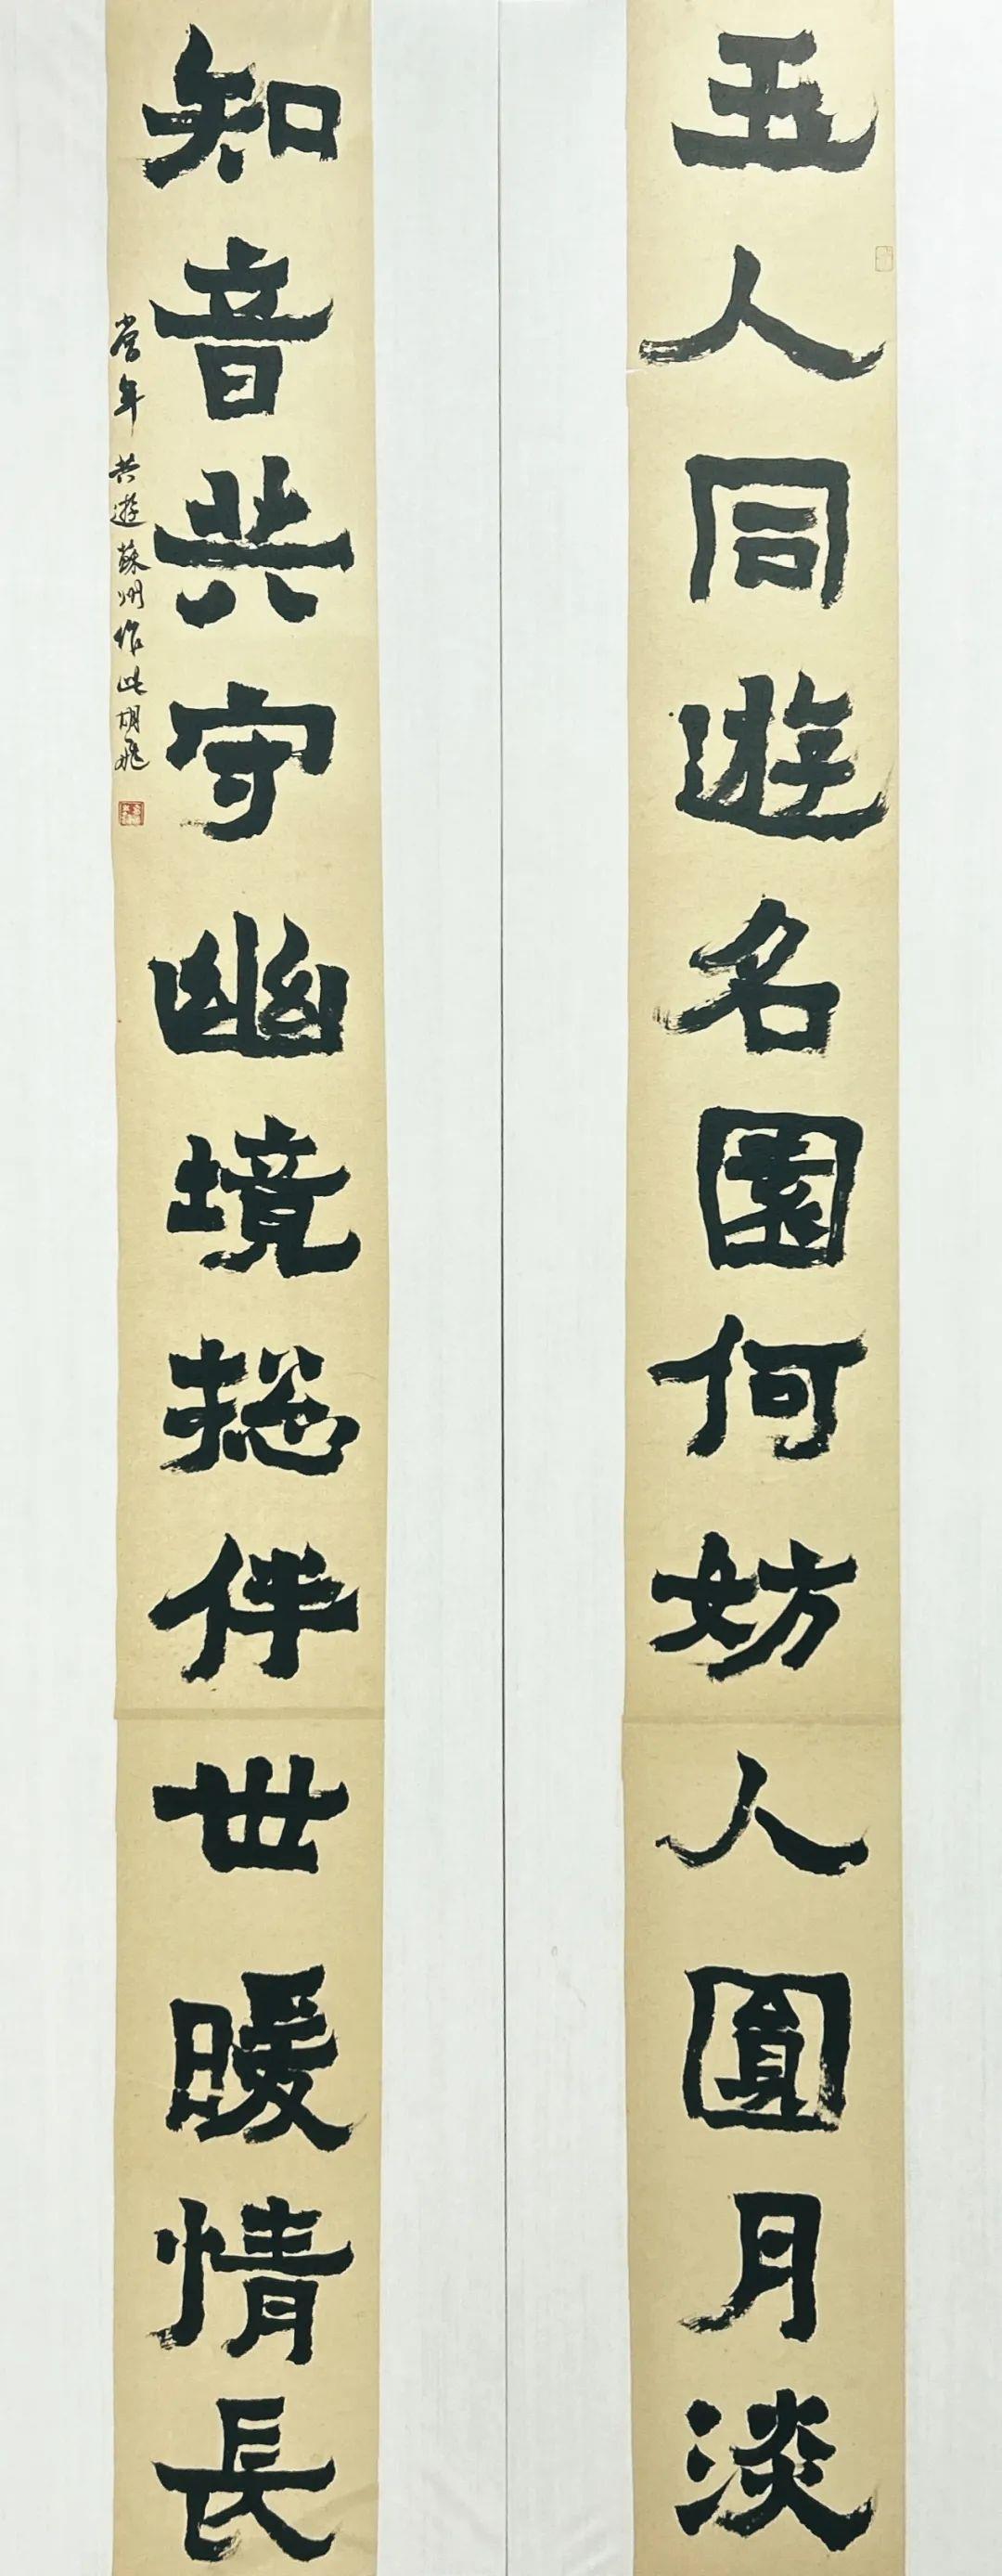 五人同遊名園何妨人圓月淡
知音共守幽境揔伴世暖情長
當年共遊蘇州作此胡飛